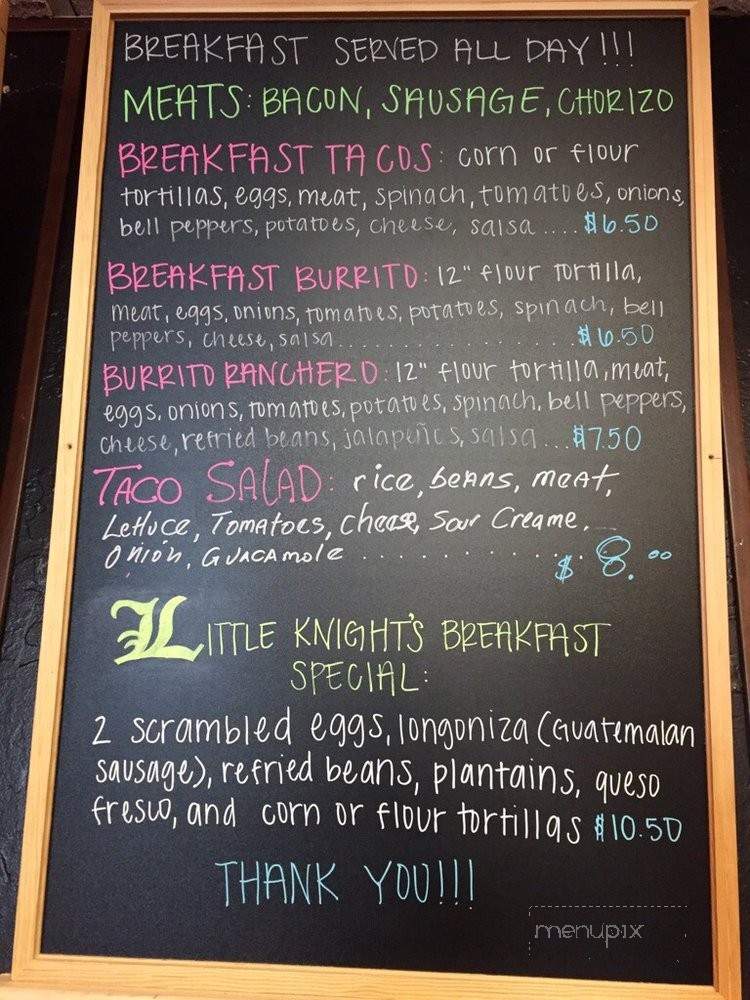 BREAKFAST SERVED ALL DAY!!!
MEATS: BACON, SAUSAGE, CHORIZO
BREAKFAST TACOS: corn or flour
tortillas, eggs, meat, spinach, tomatoes, onions,
bell peppers, potatoes, cheese, salsa .... $6.50
BREAKFAST BURRITO: 12" flour tortilla,
meat, eggs, onions, tomatoes, potatoes, spinach, bell
peppers, cheese, salsa..................... $6.50
BURRITO RANCHERO: 12" flour tortilla, meat,
eggs, onions, tomatoes, potatoes, spinach, bell peppers,
cheese, refried beans, jalapeños, salsa ... $7.50
TACO SALAD: rice, beans, meat,
Lettuce, Tomatoes, cheese, Sour Creame,
Onion, Guacamole .............. $8.00
LITTLE KNIGHT'S BREAKFAST
SPECIAL:
2 scrambled eggs, longoniza (Guatemalan
sausage), refried beans, plantains, queso
fresco, and corn or flour tortillas $10.50
THANK YOU!!!
menupix